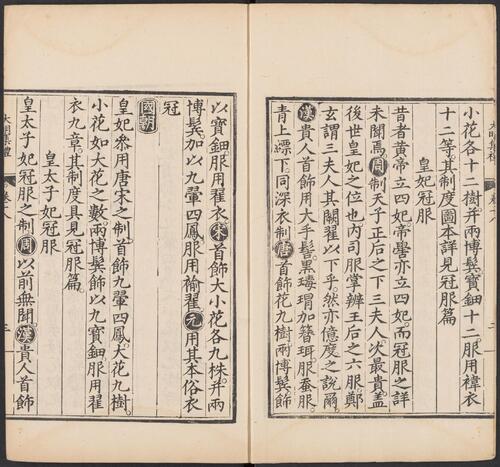 小花各十二樹并兩博鬢寶鈿十二服用褘衣
十二等其制度圖本詳見冠服篇
皇妃冠服
昔者黄帝立四妃帝嚳亦立四妃而冠服之詳
未聞焉周制天子正后之下三夫人次最貴蓋
後世皇妃之位也内司服掌辨王后之六服鄭
玄謂三夫人其闕翟以下乎然亦億度之說爾
漢貴人首飾用大手髻黑瑇瑁加簪珥服蠶服
青上縹下同深衣制唐首飾花九樹兩博鬢飾
以寶鈿服用翟衣宋首飾大小花各九株并兩
博鬢加以九翬四鳳服用褕翟元用其本俗衣
冠
國朝
皇妃叅用唐宋之制首飾九翬四鳳大花九樹
小花如大花之數兩博鬢飾以九寶鈿服用翟
衣九章其制度具見冠服篇
皇太子妃冠服
皇太子妃冠服之制周以前無聞漢貴人首飾
大明集禮